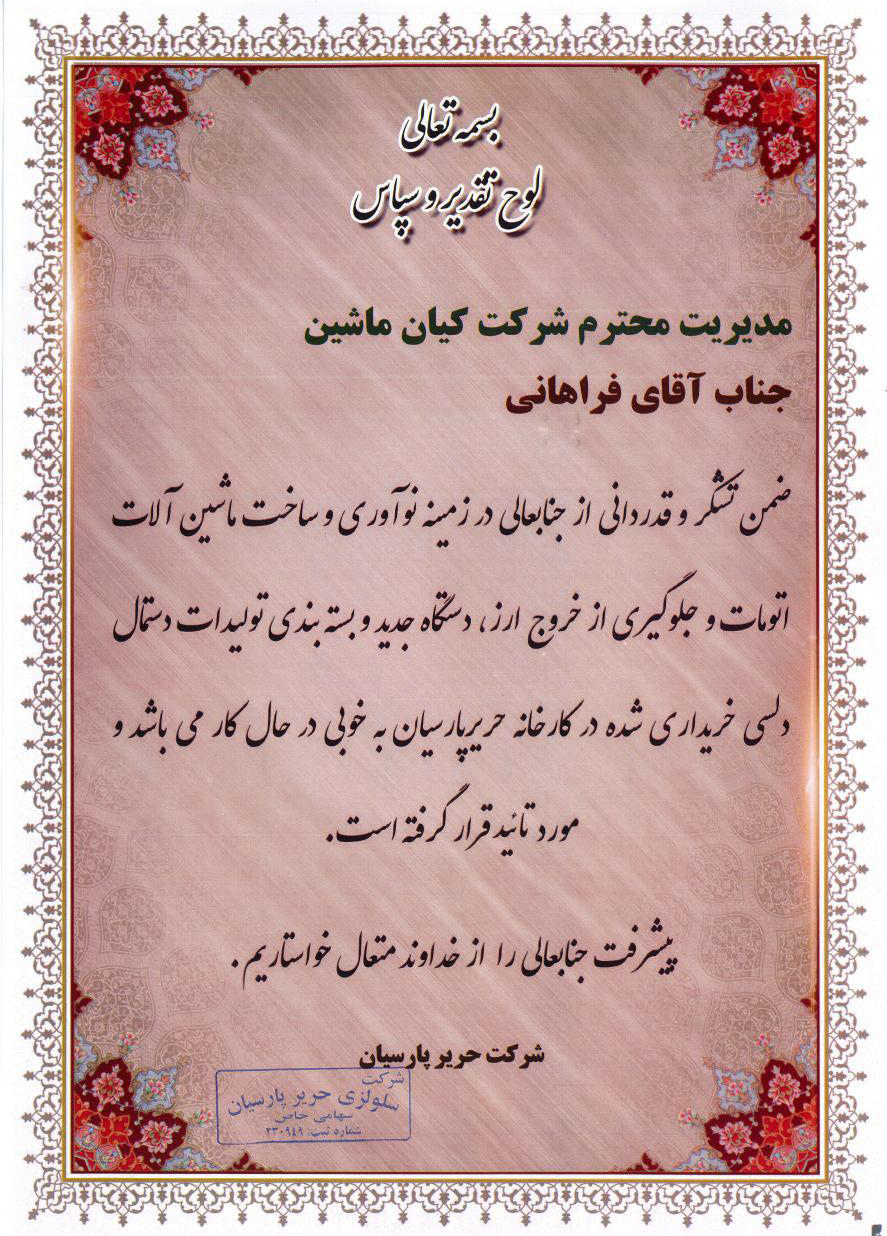 بسمه تعالی
لوح تقدیر و سپاس
مدیریت محترم شرکت کیان ماشین
جناب آقای فراهانی
ضمن تشکر و قدردانی از جنابعالی در زمینه نوآوری و ساخت ماشین آلات
اتومات و جلوگیری از خروج ارز، دستگاه جدید و بسته بندی تولیدات دستمال
دلسی خریداری شده در کارخانه حریرپارسیان به خوبی در حال کار می باشد و
مورد تائید قرار گرفته است.
پیشرفت جنابعالی را از خداوند متعال خواستاریم.
شرکت حریر پارسیان
شرکت
سلولزی حریر پارسیان
سهامی خاص
شماره ثبت: ۲۳۰۹۴۹